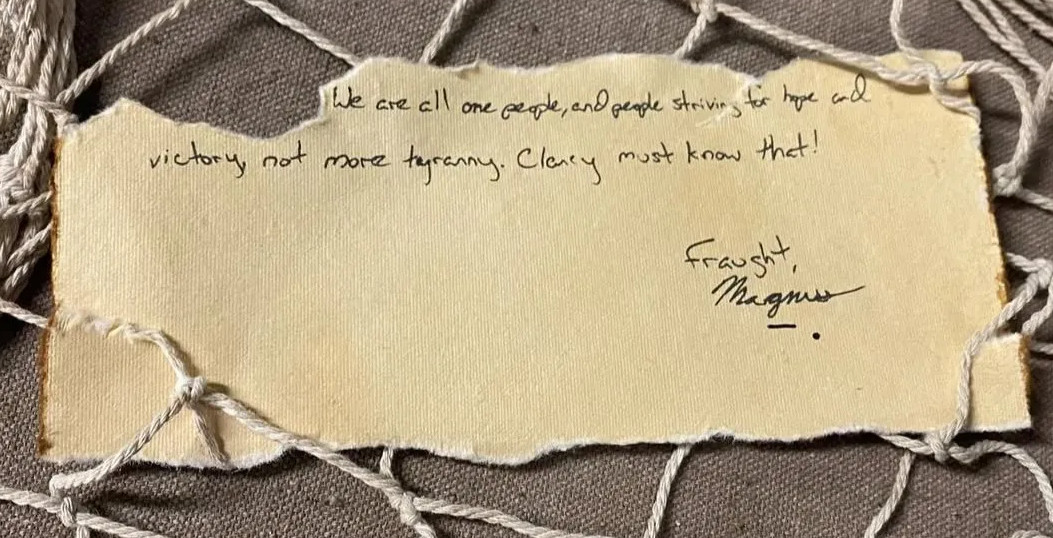 We are all one people, and people striving for hope and
victory, not more tyranny. Clancy must know that!
Fraught,
Magnus